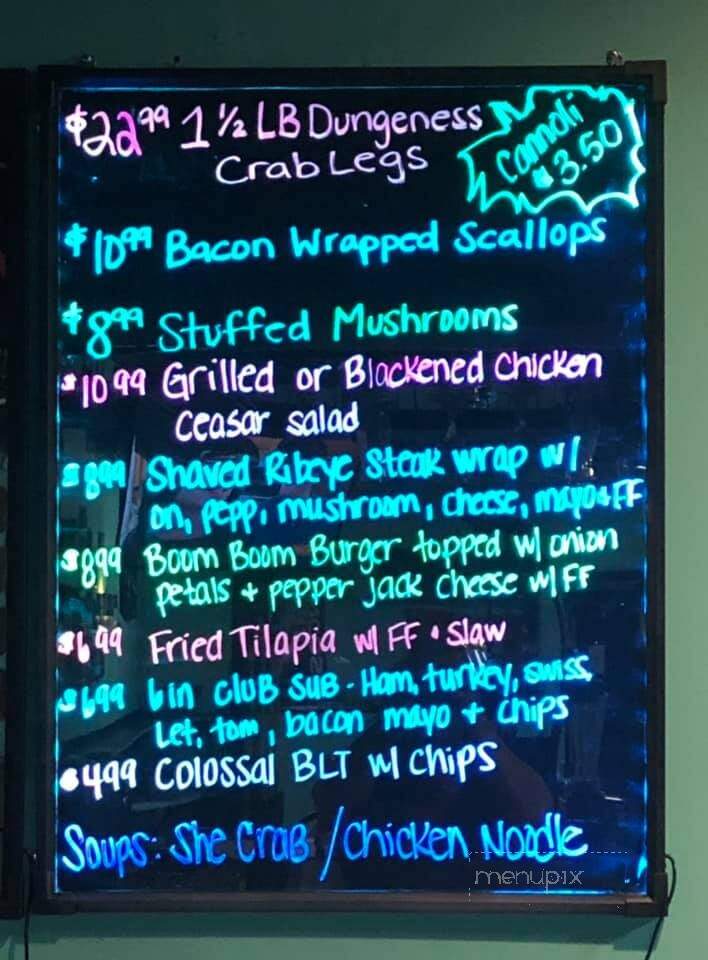 $22.99 1 1/2 LB Dungeness
Crab Legs
Cannoli
$3.50
$10.99 Bacon Wrapped Scallops
$8.99 Stuffed Mushrooms
$10.99 Grilled or Blackened Chicken
Ceasar salad
$8.99 Shaved Ribeye Steak wrap w/
on, pepp, mushroom, cheese, mayo & FF
$8.99 Boom Boom Burger topped w/ onion
petals + pepper Jack cheese w/ FF
$6.99 Fried Tilapia w/ FF & slaw
$6.99 6in club sub - Ham, turkey, swiss,
Let, tom, bacon mayo + chips
$4.99 Colossal BLT w/ chips
Soups: She Crab / Chicken Noodle
menupix